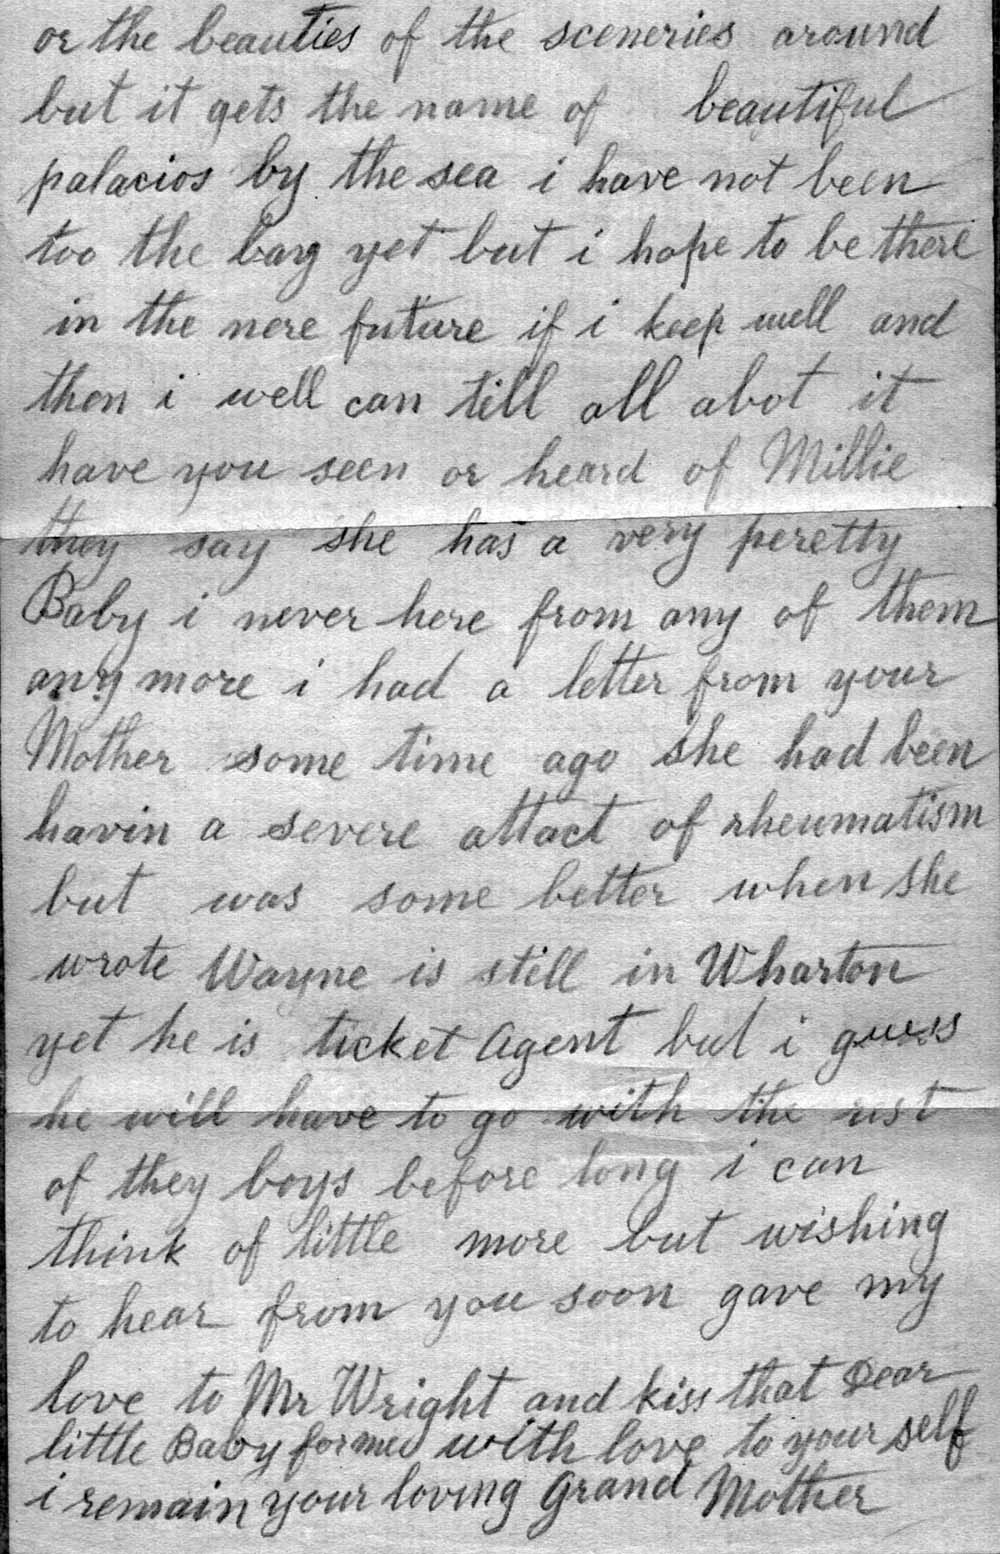 or the beauties of the sceneries around
but it gets the name of beautiful
palacios by the sea i have not been
too the bay yet but i hope to be there
in the nere future if i keep well and
then i well can till all abot it
have you seen or heard of Millie
they say she has a very peretty
Baby i never here from any of them
any more i had a letter from your
Mother some time ago she had been
havin a severe attact of rheumatism
but was some better when she
wrote Wayne is still in Wharton
yet he is ticket Agent but i guess
he will have to go with the rest
of they boys before long i can
think of little more but wishing
to hear from you soon gave my
love to Mr Wright and kiss that Dear
little Baby for me with love to your self
i remain your loving Grand Mother